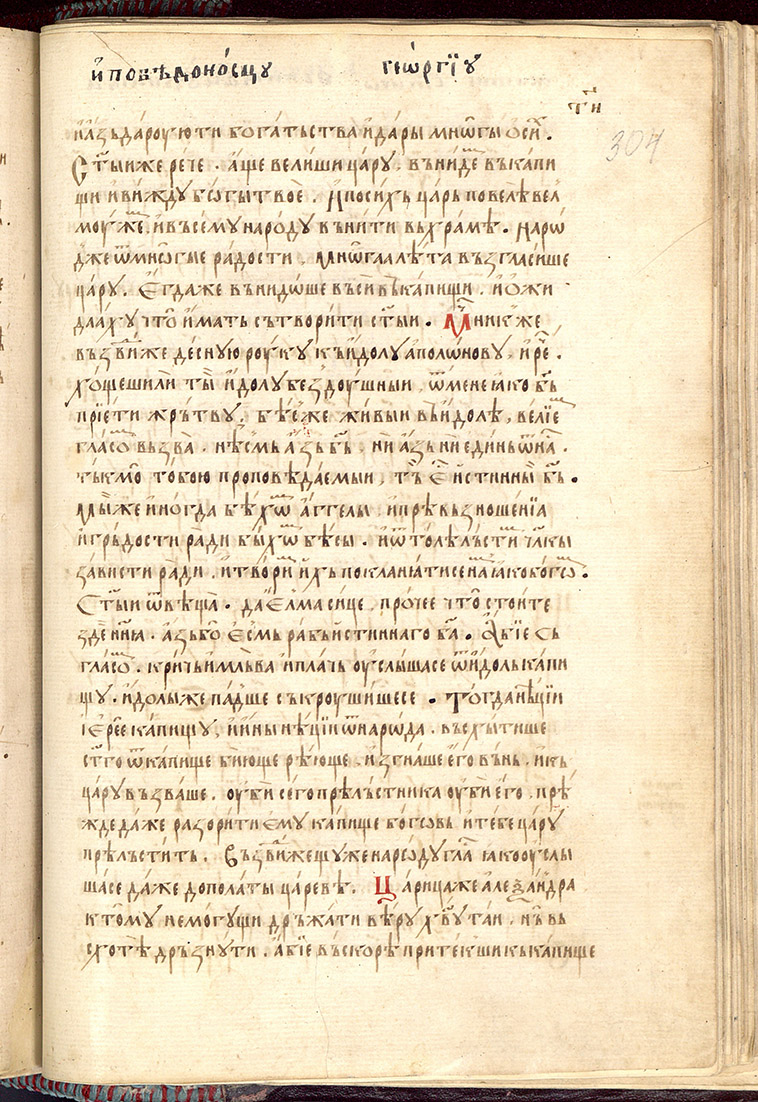 и҆ побѣдоно́сцꙋ геѡ́ргїꙋ
т҃и
304
и҆ аꙁь дароую ти бога́тьства и҆ да́ры мнѡ́гы
Ст҃ыи же рече . а҆ще велиши ца́рꙋ , вьни́де вь ка́пи
щи и҆ ви́ждꙋ бѡ́гы твое . И҆ по си́хь ца́рь повелѣ вел
моу́же . и҆ вьсемꙋ наро́дꙋ вьни́ти вь хра́мь . Наро́
д же ѿ мнѡ́гые ра́дости , мнѡ́га лѣ́та вьꙁгласише
ца́рꙋ . Е҆гда же вьнидо́ше вьси вь ка́пищи . и҆ ѡ҆жи
даа́хꙋ что̀ и҆мать сьтвори́ти ст҃ыи . Мч҃ник же
вьꙁдви́же де́сную роу́кꙋ кь и҆́долꙋ а҆поло́новꙋ , и҆ ре҇ .
хо́щеши ли ты̀ и҆́долꙋ беꙁдꙋшныи , ѿ мене ꙗ҆ко бг҃ь
прїе́ти жрь́твꙋ . бѣ́с же живы́и вь и҆́долѣ , ве́лїе
гла́со вьꙁва . нѣ́смь а҆́ꙁь бг҃ь . ни а҆́ꙁь ни еди́нь ѿ на҇ .
та́кмо тобо́ю проповѣ́даемыи , тъ̀ е҇ и҆́стинныи бг҃ь .
мы́ же и҆ногда бѣ́хѡ а҆́гг҃елы , и҆ прѣвьꙁноше́нїа
и҆ грь́дости ра́ди бы́хѡ бѣ́сы . и҆ ѿтолѣ льсти чл҃кы
ꙁа́висти ра́ди . и҆ твори и҆́хь покланꙗ́тисе на ꙗ҆ко бо́гѡ .
Ст҃ыи ѿвѣща̀ . да е҆лма сице , про́чее что̀ стои́те
ꙁде нн҃ꙗ . а҆́ꙁь бо е҆́смь ра́бь и҆́стиннаго ба҃ . А҆́бїе сь
гла́со . кри́чь и҆ мль́ва и҆ пла́чь оу҆слы́шасе ѿ и҆́доль ка́пи
щꙋ . и҆́долы же па́дше ськроуши́шесе . Тогда нѣ́цїи
і҆ере́е ка́пищꙋ , и҆ и҆́ны нѣ́цїи ѿ наро́да . вьсхы́тише
ст҃го ѿ ка́пище бїюще рѣ́юще . и҆ꙁгна́ше е҆го вь́нь . и҆ кь
ца́рꙋ вьꙁва́ше . оу҆бїи сего прѣль́стника оу҆бїи е҆го . прѣ
жде да́же раꙁори́ти е҆мꙋ ка́пище бо́говь и҆ тебе ца́рꙋ
прѣльсти́ть . Вьꙁдви́жещꙋ же наро́дꙋ гла҇ ꙗ҆ко оу҆слы
шасе да́же до пола́ты ца́ревѣ . Ца́рица же а҆леꙁа́ндра
к томꙋ не могꙋщи дрьжа́ти вѣ́рꙋ хв҃ꙋ ута́и . нь̀ вь
схотѣ̀ дрьꙁнꙋ́ти . а҆́бїе вьско́рѣ прите́кши кь ка́пище